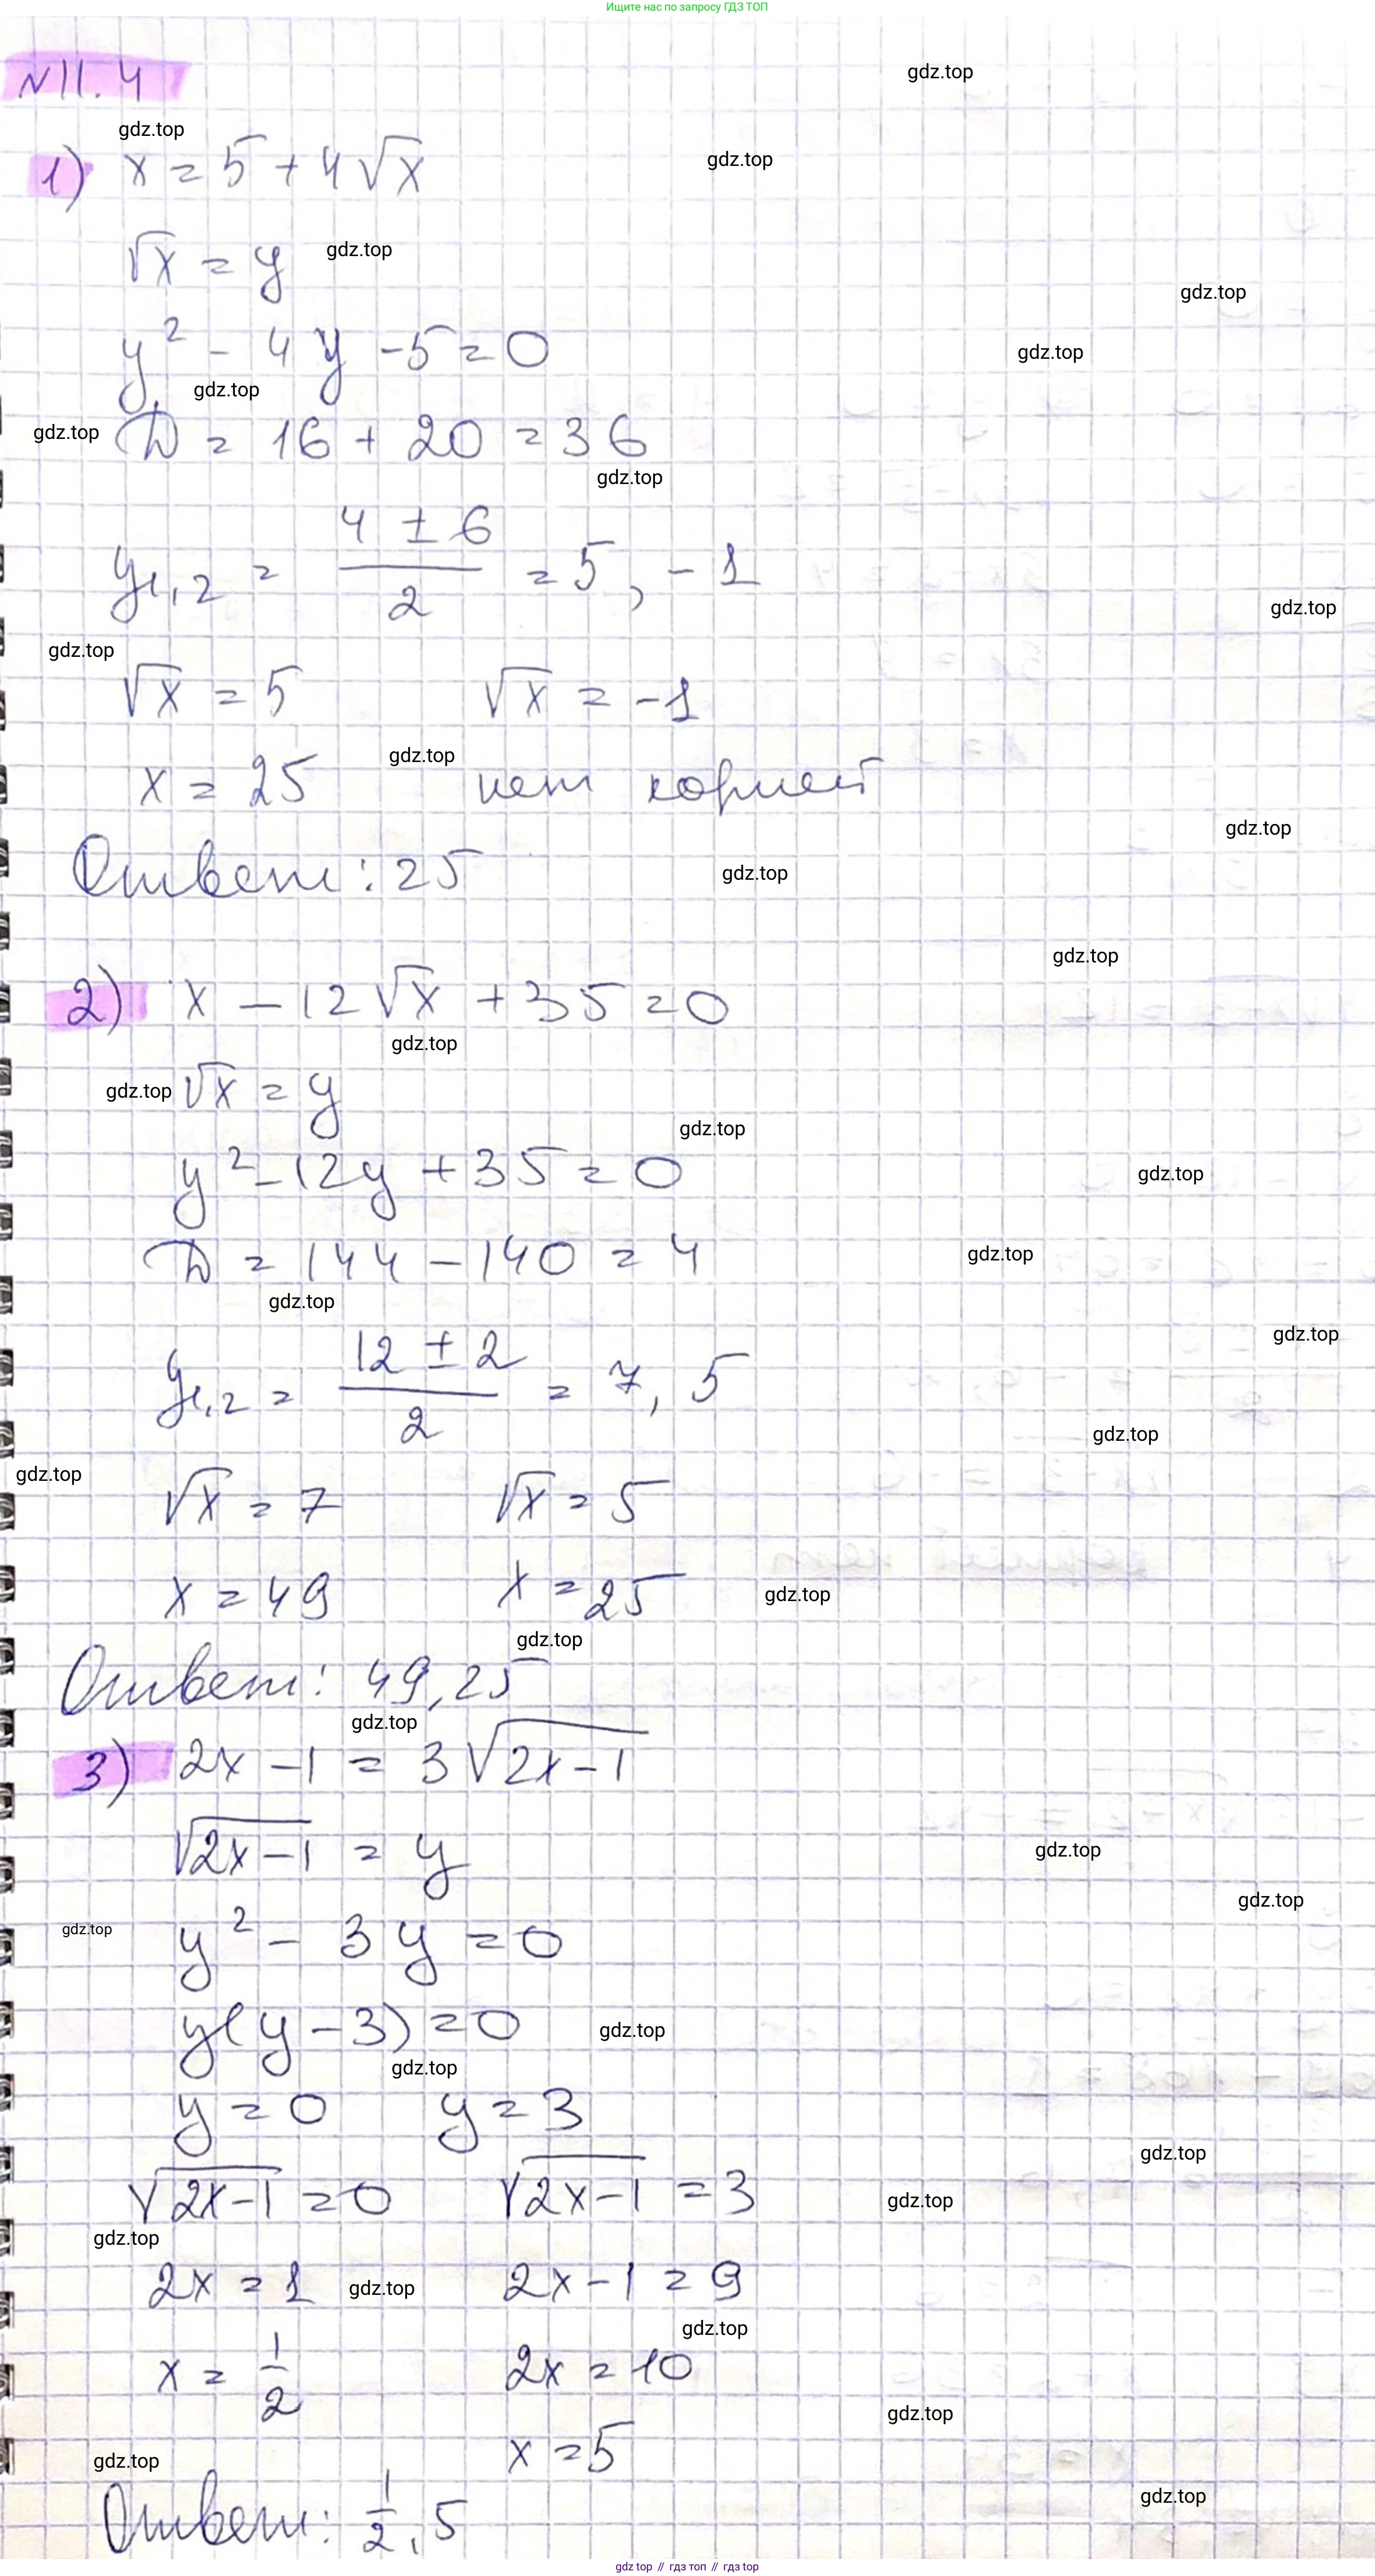 Ищите нас по запросу ГДЗ ТОП
N11.4
gdz.top
gdz.top
1) x = 5 + 4√x
gdz.top
√x = y
gdz.top
gdz.top
y² - 4y - 5 = 0
gdz.top
gdz.top
gdz.top
D = 16 + 20 = 36
gdz.top
y₁,₂ = (4 ± 6)/2 = 5, -1
gdz.top
gdz.top
√x = 5 √x = -1
gdz.top
x = 25 нет корней
gdz.top
Ответ: 25
gdz.top
gdz.top
2) x - 12√x + 35 = 0
gdz.top
gdz.top
√x = y
gdz.top
y² - 12y + 35 = 0
gdz.top
D = 144 - 140 = 4
gdz.top
gdz.top
gdz.top
y₁,₂ = (12 ± 2)/2 = 7, 5
gdz.top
gdz.top
√x = 7 √x = 5
x = 49 x = 25
gdz.top
gdz.top
Ответ: 49, 25
gdz.top
3) 2x - 1 = 3√(2x - 1)
√(2x - 1) = y
gdz.top
gdz.top
gdz.top
y² - 3y = 0
y(y - 3) = 0
gdz.top
gdz.top
y = 0 y = 3
gdz.top
√(2x - 1) = 0 √(2x - 1) = 3
gdz.top
gdz.top
2x = 1 2x - 1 = 9
gdz.top
gdz.top
x = 1/2 2x = 10
gdz.top
x = 5
gdz.top
gdz.top
Ответ: 1/2, 5
gdz top // гдз топ // гдз top